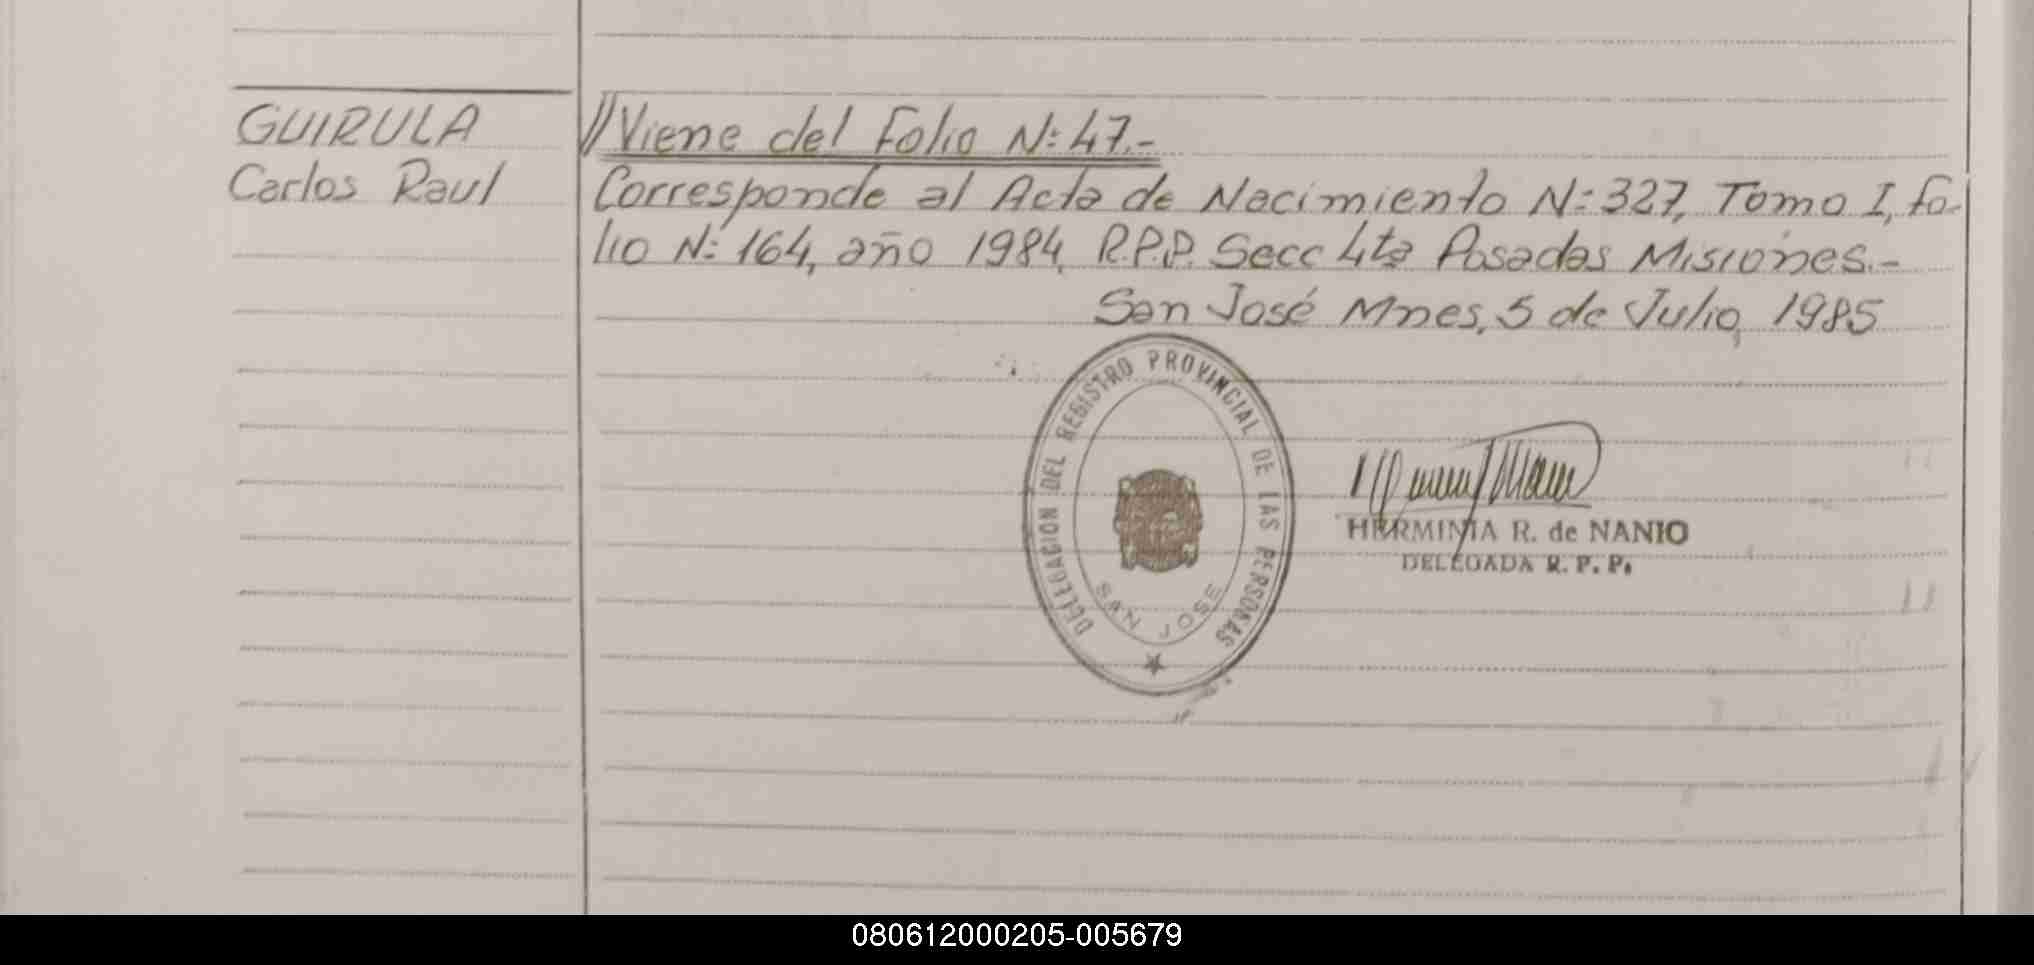 GUIRULA
Carlos Raul
//Viene del Folio N: 47.-
Corresponde al Acta de Nacimiento N: 327, Tomo I, fo-
lio N: 164, año 1984, R.P.P. Secc 4ta Posadas Misiones.-
San José Mnes, 5 de Julio, 1985
DELEGACION DEL REGISTRO PROVINCIAL DE LAS PERSONAS
SAN JOSE
HERMINIA R. de NANIO
DELEGADA R. P. P.
080612000205-005679